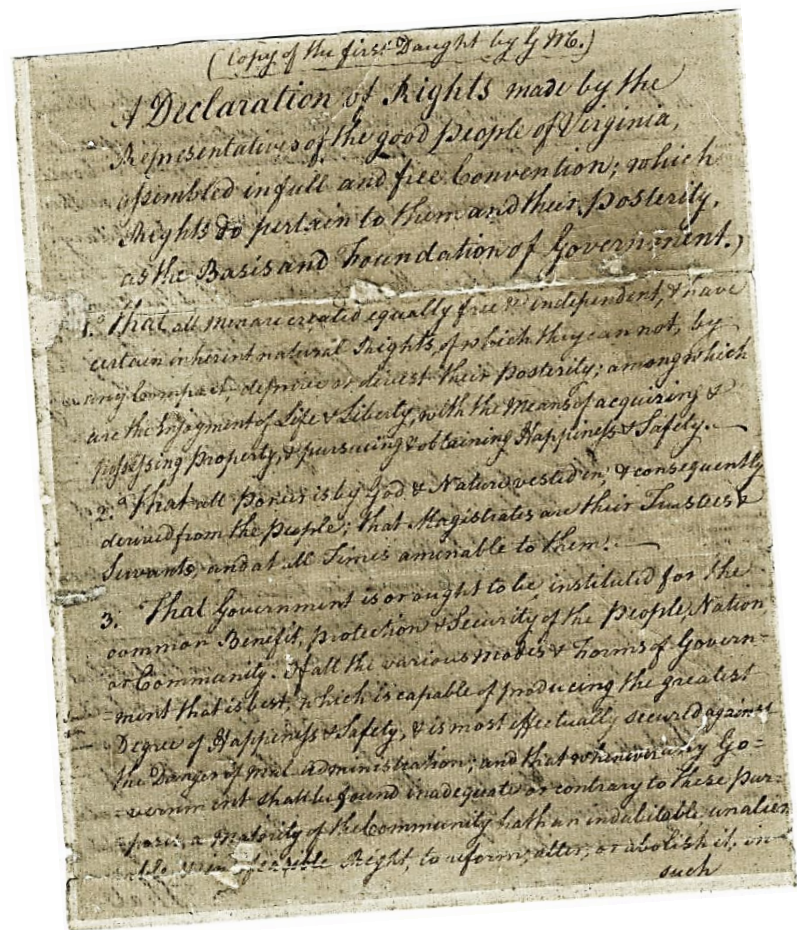 (Copy of the first Daught by G M.)
A Declaration of Rights made by the
Representatives of the good people of Virginia,
assembled in full and free Convention; which
Rights do pertain to them and their posterity,
as the Basis and Foundation of Government.)
1. That all men are created equally free & independent, & have
certain inherent natural Rights, of which they can not, by
any Compact, deprive or divest their Posterity; among which
are the Enjoyment of Life & Liberty, with the Means of acquiring &
possessing Property, & pursuing & obtaining Happiness & Safety.
2. That all Power is by God & Nature vested in, & consequently
derived from the People; that Magistrates are their Trustees &
Servants, and at all Times amenable to them.
3. That Government is or ought to be, instituted for the
common Benefit, protection & Security of the People, Nation
or Community. Of all the various modes & Forms of Govern=
=ment that is best, which is capable of producing the greatest
Degree of Happiness & Safety, & is most effectually secured against
the Danger of mal-administration; and that whenever any Go=
=vernment shall be found inadequate or contrary to these pur=
poses, a Majority of the Community hath an indubitable unalien
Right, to reform, alter, or abolish it, in
such